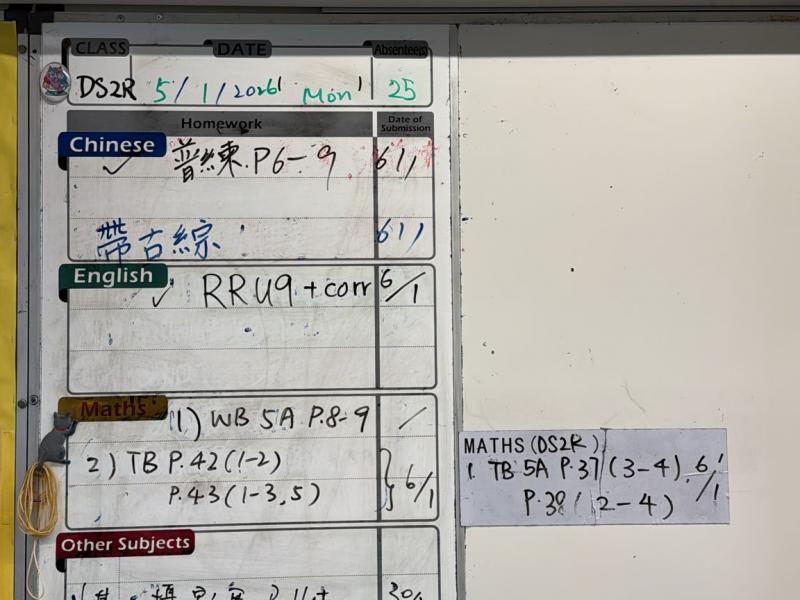 CLASS DATE Absentee(s)
DS2R 5/1/2026 Mon 25
Homework Date of Submission
Chinese
普練.P6-9 6/1
帶古綜 6/1
English
RRU9 + corr 6/1
Maths
1) WB 5A P.8-9 /
2) TB P.42 (1-2)
P.43 (1-3, 5) 6/1
Other Subjects
MATHS (DS2R)
1. TB 5A P.37 (3-4) 6/1
P.38 (2-4)